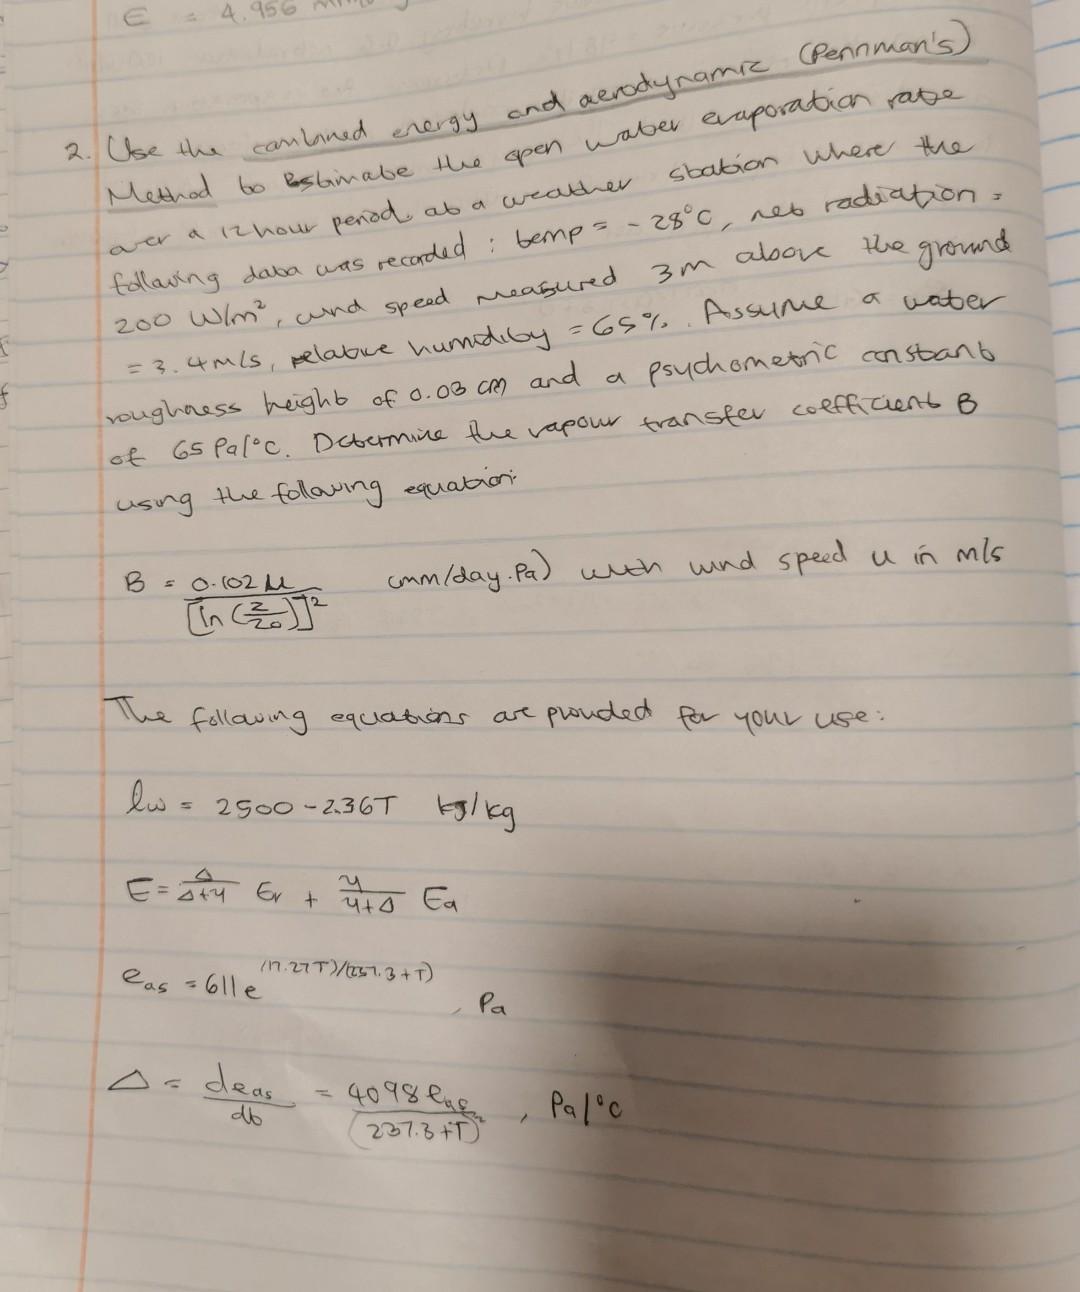 E = 4.956
2. Use the combined energy and aerodynamic (Pennman's)
Method to Estimate the open water evaporation rate
over a 12 hour period at a weather station where the
following data was recorded : temp = - 28°C, net radiation =
200 W/m², wind speed measured 3m above the ground
= 3.4m/s, relative humidity = 65%. Assume a water
roughness height of 0.03 cm and a psychometric constant
of 65 Pa/°C. Determine the vapour transfer coefficient B
using the following equation:
B = 0.102 u / [ln (z/z0)]² (mm/day.Pa) with wind speed u in m/s
The following equations are provided for your use:
lw = 2500 - 2.36T kJ/kg
E = Δ/(Δ+γ) Er + γ/(γ+Δ) Ea
eas = 611e^(17.27T)/(237.3+T) , Pa
Δ = deas/dt = 4098 eas/(237.3+T)² , Pa/°C